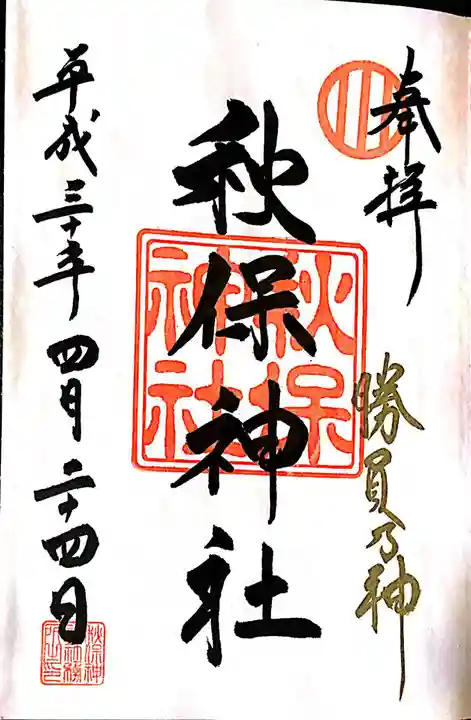 奉拝
勝負乃神
秋保神社
秋保神社
平成三十年四月二十四日